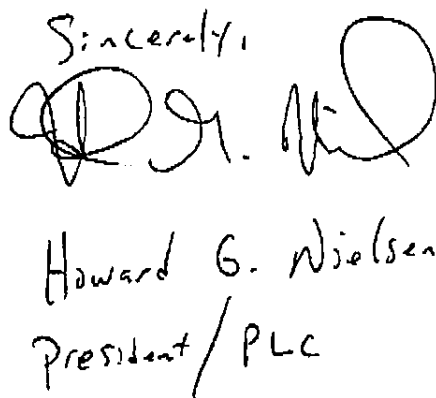 Sincerely,
Howard G. Nielsen
President/PLC